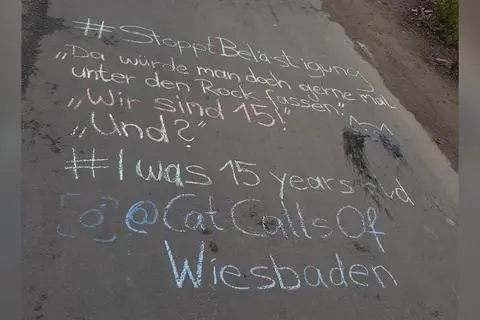 #StopptBelästigung
„Da würde man doch gerne mal
unter den Rock fassen."
„Wir sind 15!"
„Und?"
#I was 15 years old
@CatCallsOf
Wiesbaden